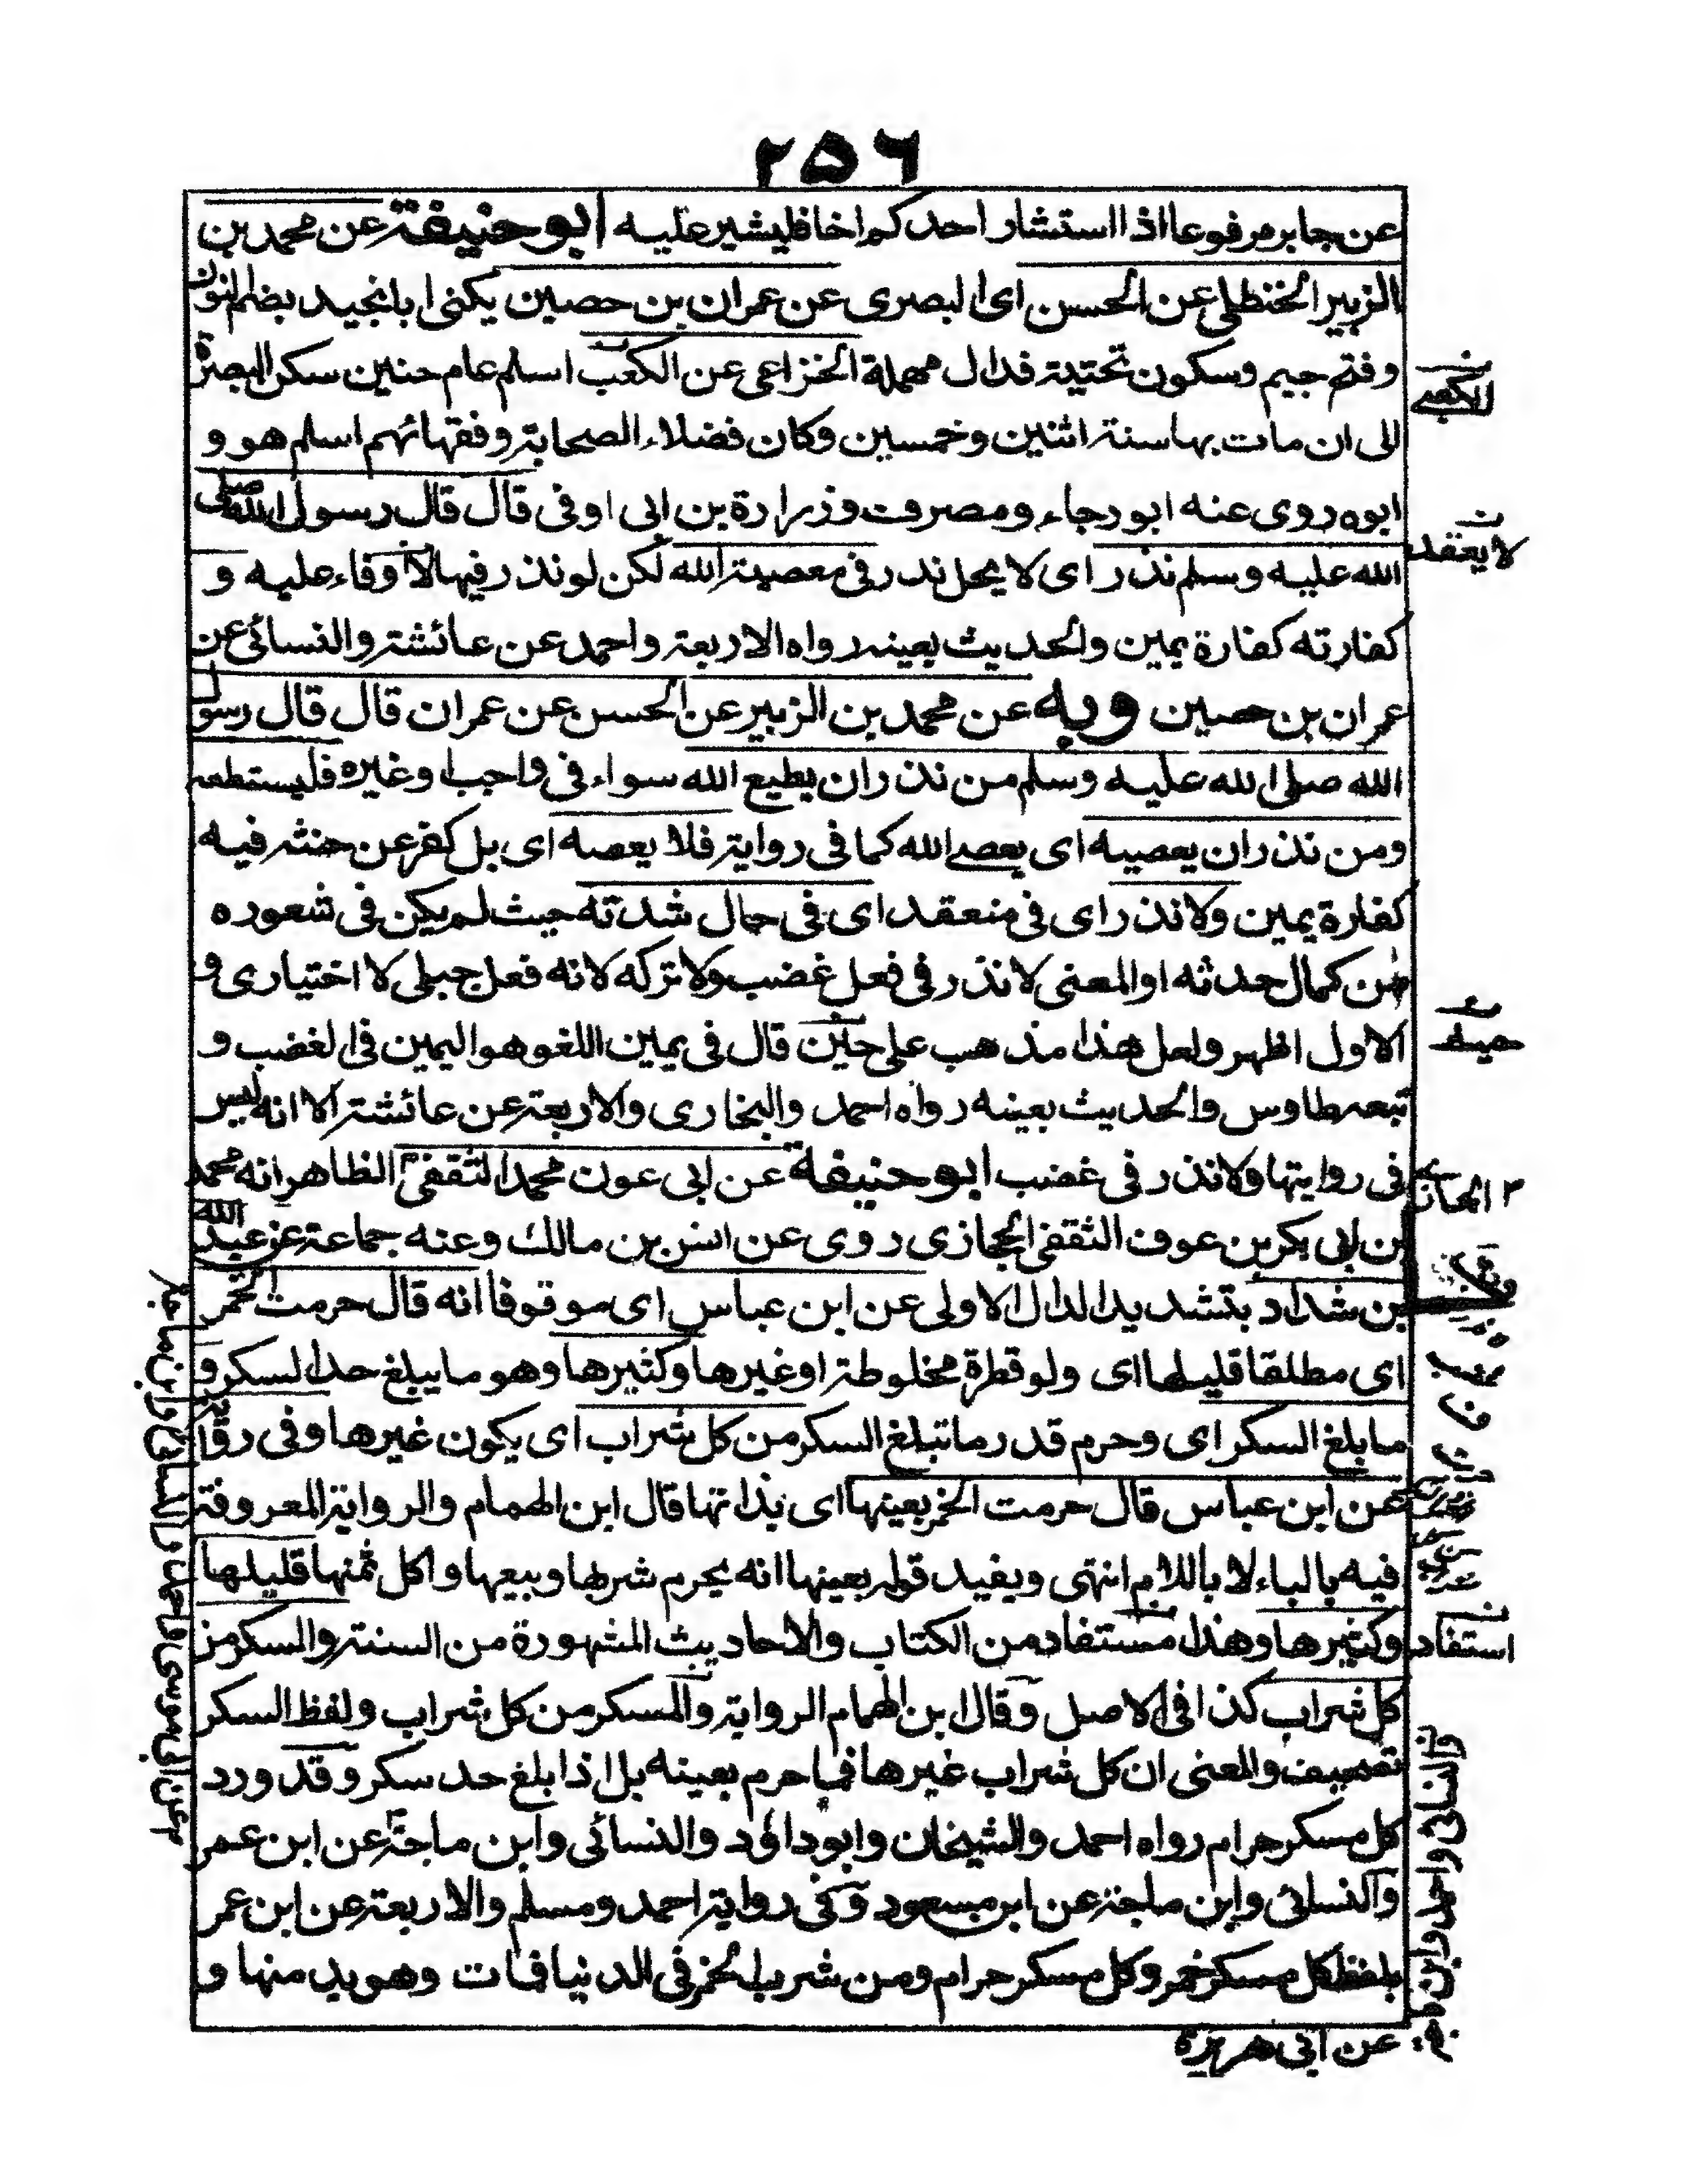 ٢٥٦
عن جابر مرفوعا اذا استشار احدكم اخا فليشير عليه ابو حنيفة عن محمد بن
الزبير الخنظلى عن الحسن اى البصرى عن عمران بن حصين يكنى ابا نجيد بضم النون
وفتح جيم وسكون تحتية فدال مهملة الخزاعى عن الكعب اسلم عام حنين سكن البصرة
الى ان مات بها سنة اثنين وخمسين وكان فضلاء الصحابة وفقهائهم اسلم هو و
ابوه روى عنه ابو رجاء ومصروف وزرارة بن ابى اوفى قال قال رسول الله صلى
الله عليه وسلم نذر اى لا يحل ندر فى معصية الله لكن لو نذر فيها لا وفاء عليه و
كفارته كفارة يمين والحديث بعينه رواه الاربعة واحمد عن عائشة والنسائى عن
عمران بن حصين وبه عن محمد بن الزبير عن الحسن عن عمران قال قال رسول
الله صلى الله عليه وسلم من نذر ان يطيع الله سواء فى واجب او غيره فليستطعه
ومن نذر ان يعصيه اى يعصى الله كما فى رواية فلا يعصه اى بل كفر عن حنثه فيه
كفارة يمين ولا نذر اى فى منعقد اى فى حال شدته حيث لم يكن فى شعوره
من كمال حدثه او المعنى لا نذر فى فعل غضب ولا تركه لانه فعل جبلى لا اختيارى و
الاول اظهر ولعل هذا مذهب على حين قال فى يمين اللغو هو اليمين فى الغضب و
تبعه طاوس والحديث بعينه رواه احمد والبخارى والاربعة عن عائشة الا انه ليس
فى روايتها ولا نذر فى غضب ابو حنيفة عن ابى عون محمد الثقفى الظاهر انه محمد
بن ابى بكر بن عوف الثقفى الحجازى روى عن انس بن مالك وعنه جماعة عن عبد الله
بن شداد بتشديد الدال الاولى عن ابن عباس اى موقوفا انه قال حرمت الخمر
اى مطلقا قليلها اى ولو قطرة مخلوطة او غيرها وكثيرها وهو ما يبلغ حد السكر و
ما بلغ السكر اى وحرم قدر ما تبلغ السكر من كل شراب اى يكون غيرها وفى رواية
عن ابن عباس قال حرمت الخمر بعينها اى بذاتها قال ابن الهمام والرواية المعروفة
فيه بالباء لا باللام انتهى ويفيد قوله بعينها انه يحرم شربها وبيعها واكل ثمنها قليلها
وكثيرها وهذا مستفاد من الكتاب والاحاديث المشهورة من السنة والسكر من
كل شراب كذا فى الاصل وقال ابن الهمام الرواية والمسكر من كل شراب ولفظ السكر
تصحيف والمعنى ان كل شراب غيرها فما حرم بعينه بل اذا بلغ حد سكر وقد ورد
كل مسكر حرام رواه احمد والشيخان وابو داؤد والنسائى وابن ماجة عن ابن عمر
والنسائى وابن ماجة عن ابن مسعود وفى رواية احمد ومسلم والاربعة عن ابن عمر
بلفظ كل مسكر خمر وكل مسكر حرام ومن شرب الخمر فى الدنيا فمات وهو يدمنها و
الكعبى
لا يعقد
استفاد
والنسائى واحمد وابن
عن ابى هريرة
عن ابى موسى واحمد والنسائى وابن ماجة